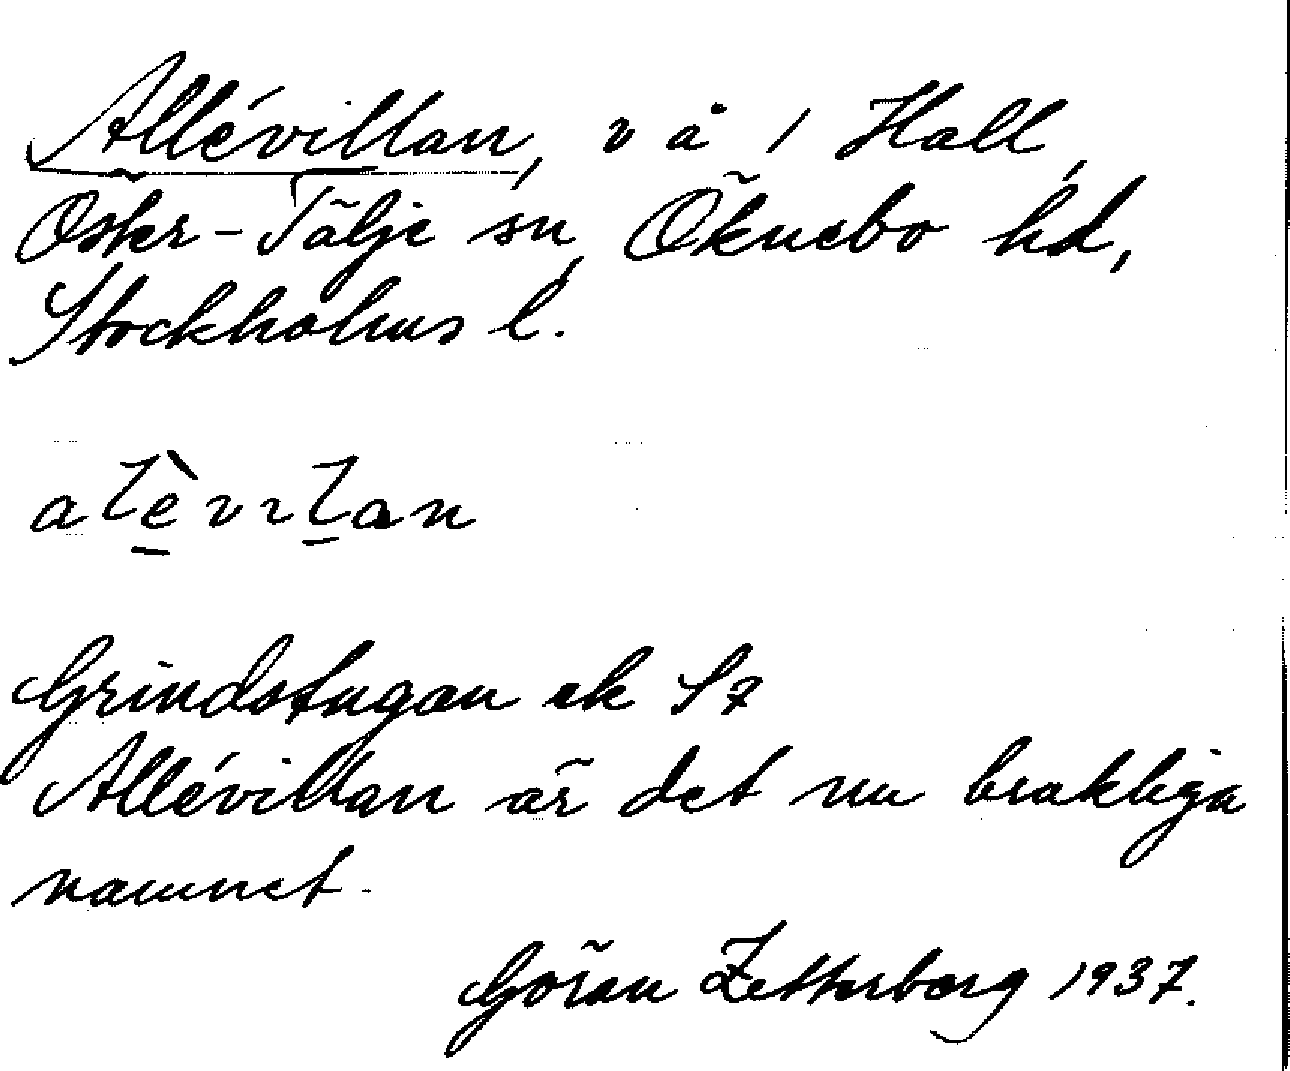 Allévillan, v å 1 Hall,
Öster-Tälje sn, Öknebo hd,
Stockholms l.
alèvılan
Grindstugan ek S7
Allévillan är det nu brukliga
namnet.
Göran Zetterberg 1937.